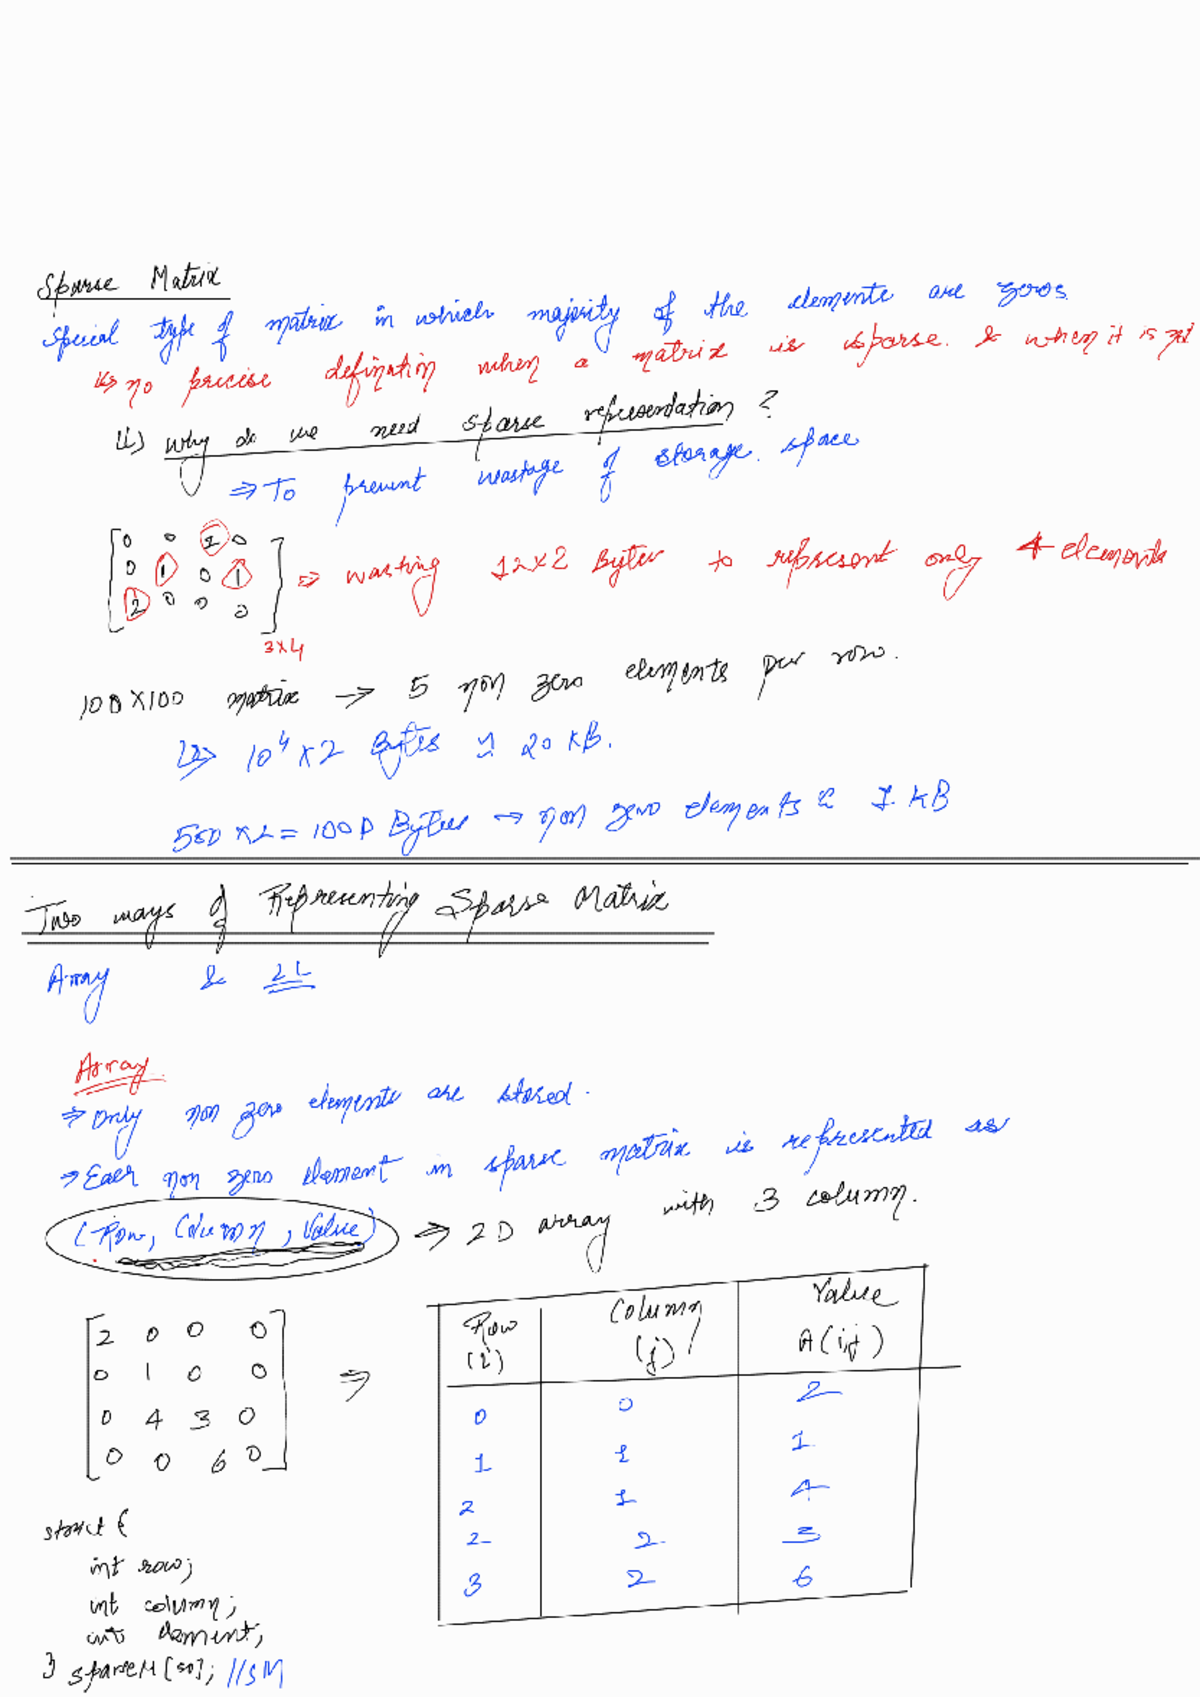 Sparse Matrix
special type of matrix in which majority of the elements are zeros
↳ no precise defination when a matrix is sparse. & when it is not
ii) why do we need sparse representation ?
⇒ To prevent wastage of storage. space
0 0 1 0
0 1 0 1 ⇒ wasting 12×2 Bytes to represent only 4 elements
2 0 0 0
3×4
100×100 matrix → 5 non zero elements per row.
↳ 10⁴×2 Bytes ≃ 20 KB.
500×2 = 1000 Bytes → non zero elements ≃ 1 KB
Two ways of Representing Sparse Matrix
Array & LL
Array
⇒ Only non zero elements are stored.
⇒ Each non zero element in sparse matrix is represented as
(Row, Column, Value) ⇒ 2D array with 3 column.
Row (i) Column (j) Value A(i,j)
2 0 0 0
0 1 0 0 ⇒
0 4 3 0
0 0 6 0
0 0 2
1 1 1
2 1 4
2 2 3
3 2 6
struct {
int row;
int column;
int element;
} sparseM[50]; //SM